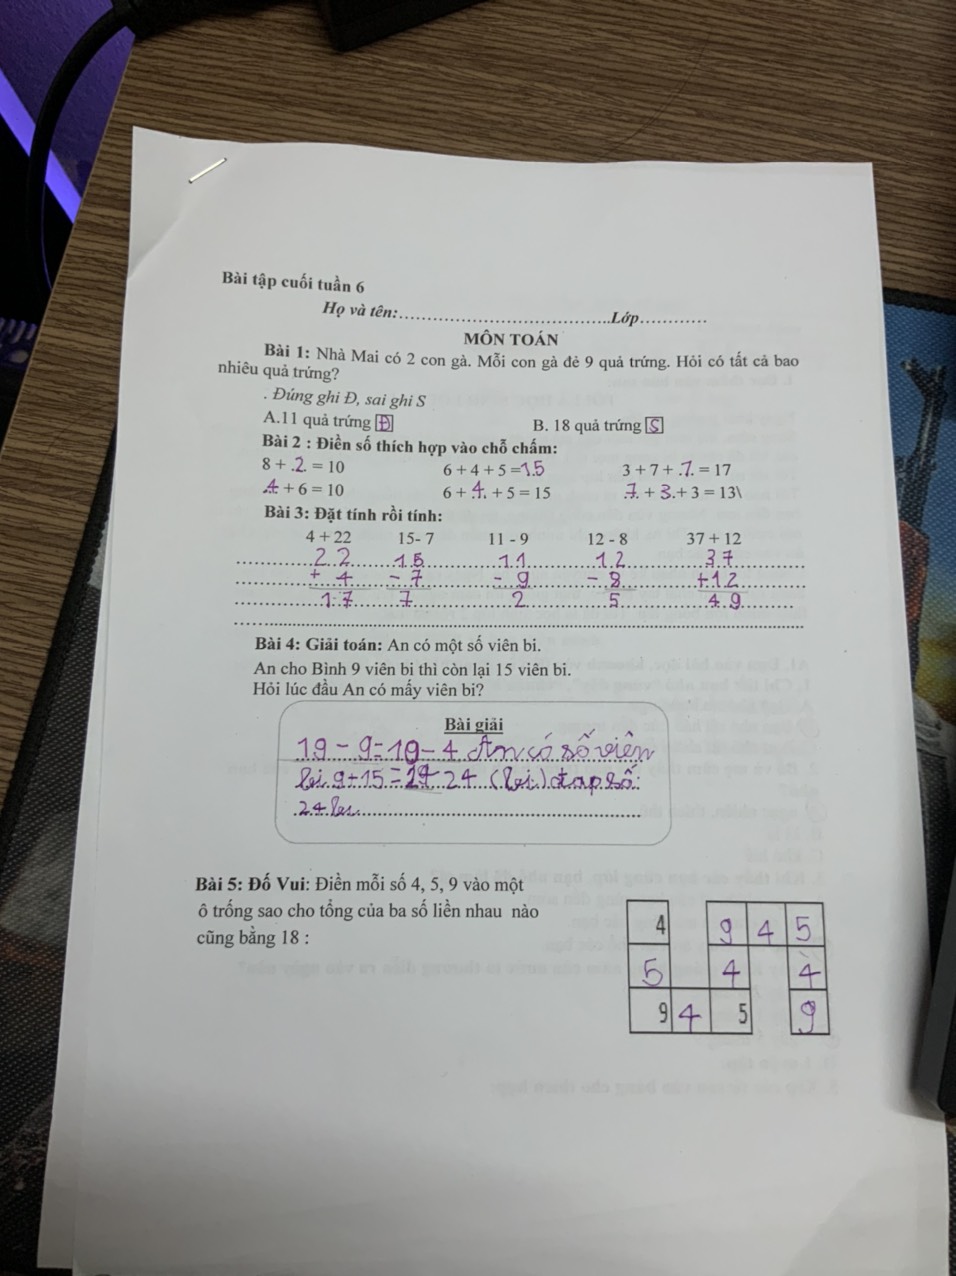 Bài tập cuối tuần 6
Họ và tên:......................................Lớp............
MÔN TOÁN
Bài 1: Nhà Mai có 2 con gà. Mỗi con gà đẻ 9 quả trứng. Hỏi có tất cả bao
nhiêu quả trứng?
. Đúng ghi Đ, sai ghi S
A.11 quả trứng Đ B. 18 quả trứng S
Bài 2 : Điền số thích hợp vào chỗ chấm:
8 + .2. = 10 6 + 4 + 5 =15 3 + 7 + .7. = 17
.4. + 6 = 10 6 + .4. + 5 = 15 .7. + 3.+ 3 = 13\
Bài 3: Đặt tính rồi tính:
4 + 22 15- 7 11 - 9 12 - 8 37 + 12
22 15 11 12 37
+ 4 - 7 - 9 - 8 +12
17 7 2 5 49
Bài 4: Giải toán: An có một số viên bi.
An cho Bình 9 viên bi thì còn lại 15 viên bi.
Hỏi lúc đầu An có mấy viên bi?
Bài giải
19 - 9 = 10 - 4 An có số viên
bi 9 + 15 = 24 (bi) đáp số:
24 bi
Bài 5: Đố Vui: Điền mỗi số 4, 5, 9 vào một
ô trống sao cho tổng của ba số liền nhau nào
cũng bằng 18 :
4 9 4 5
5 4 4
9 4 5 9